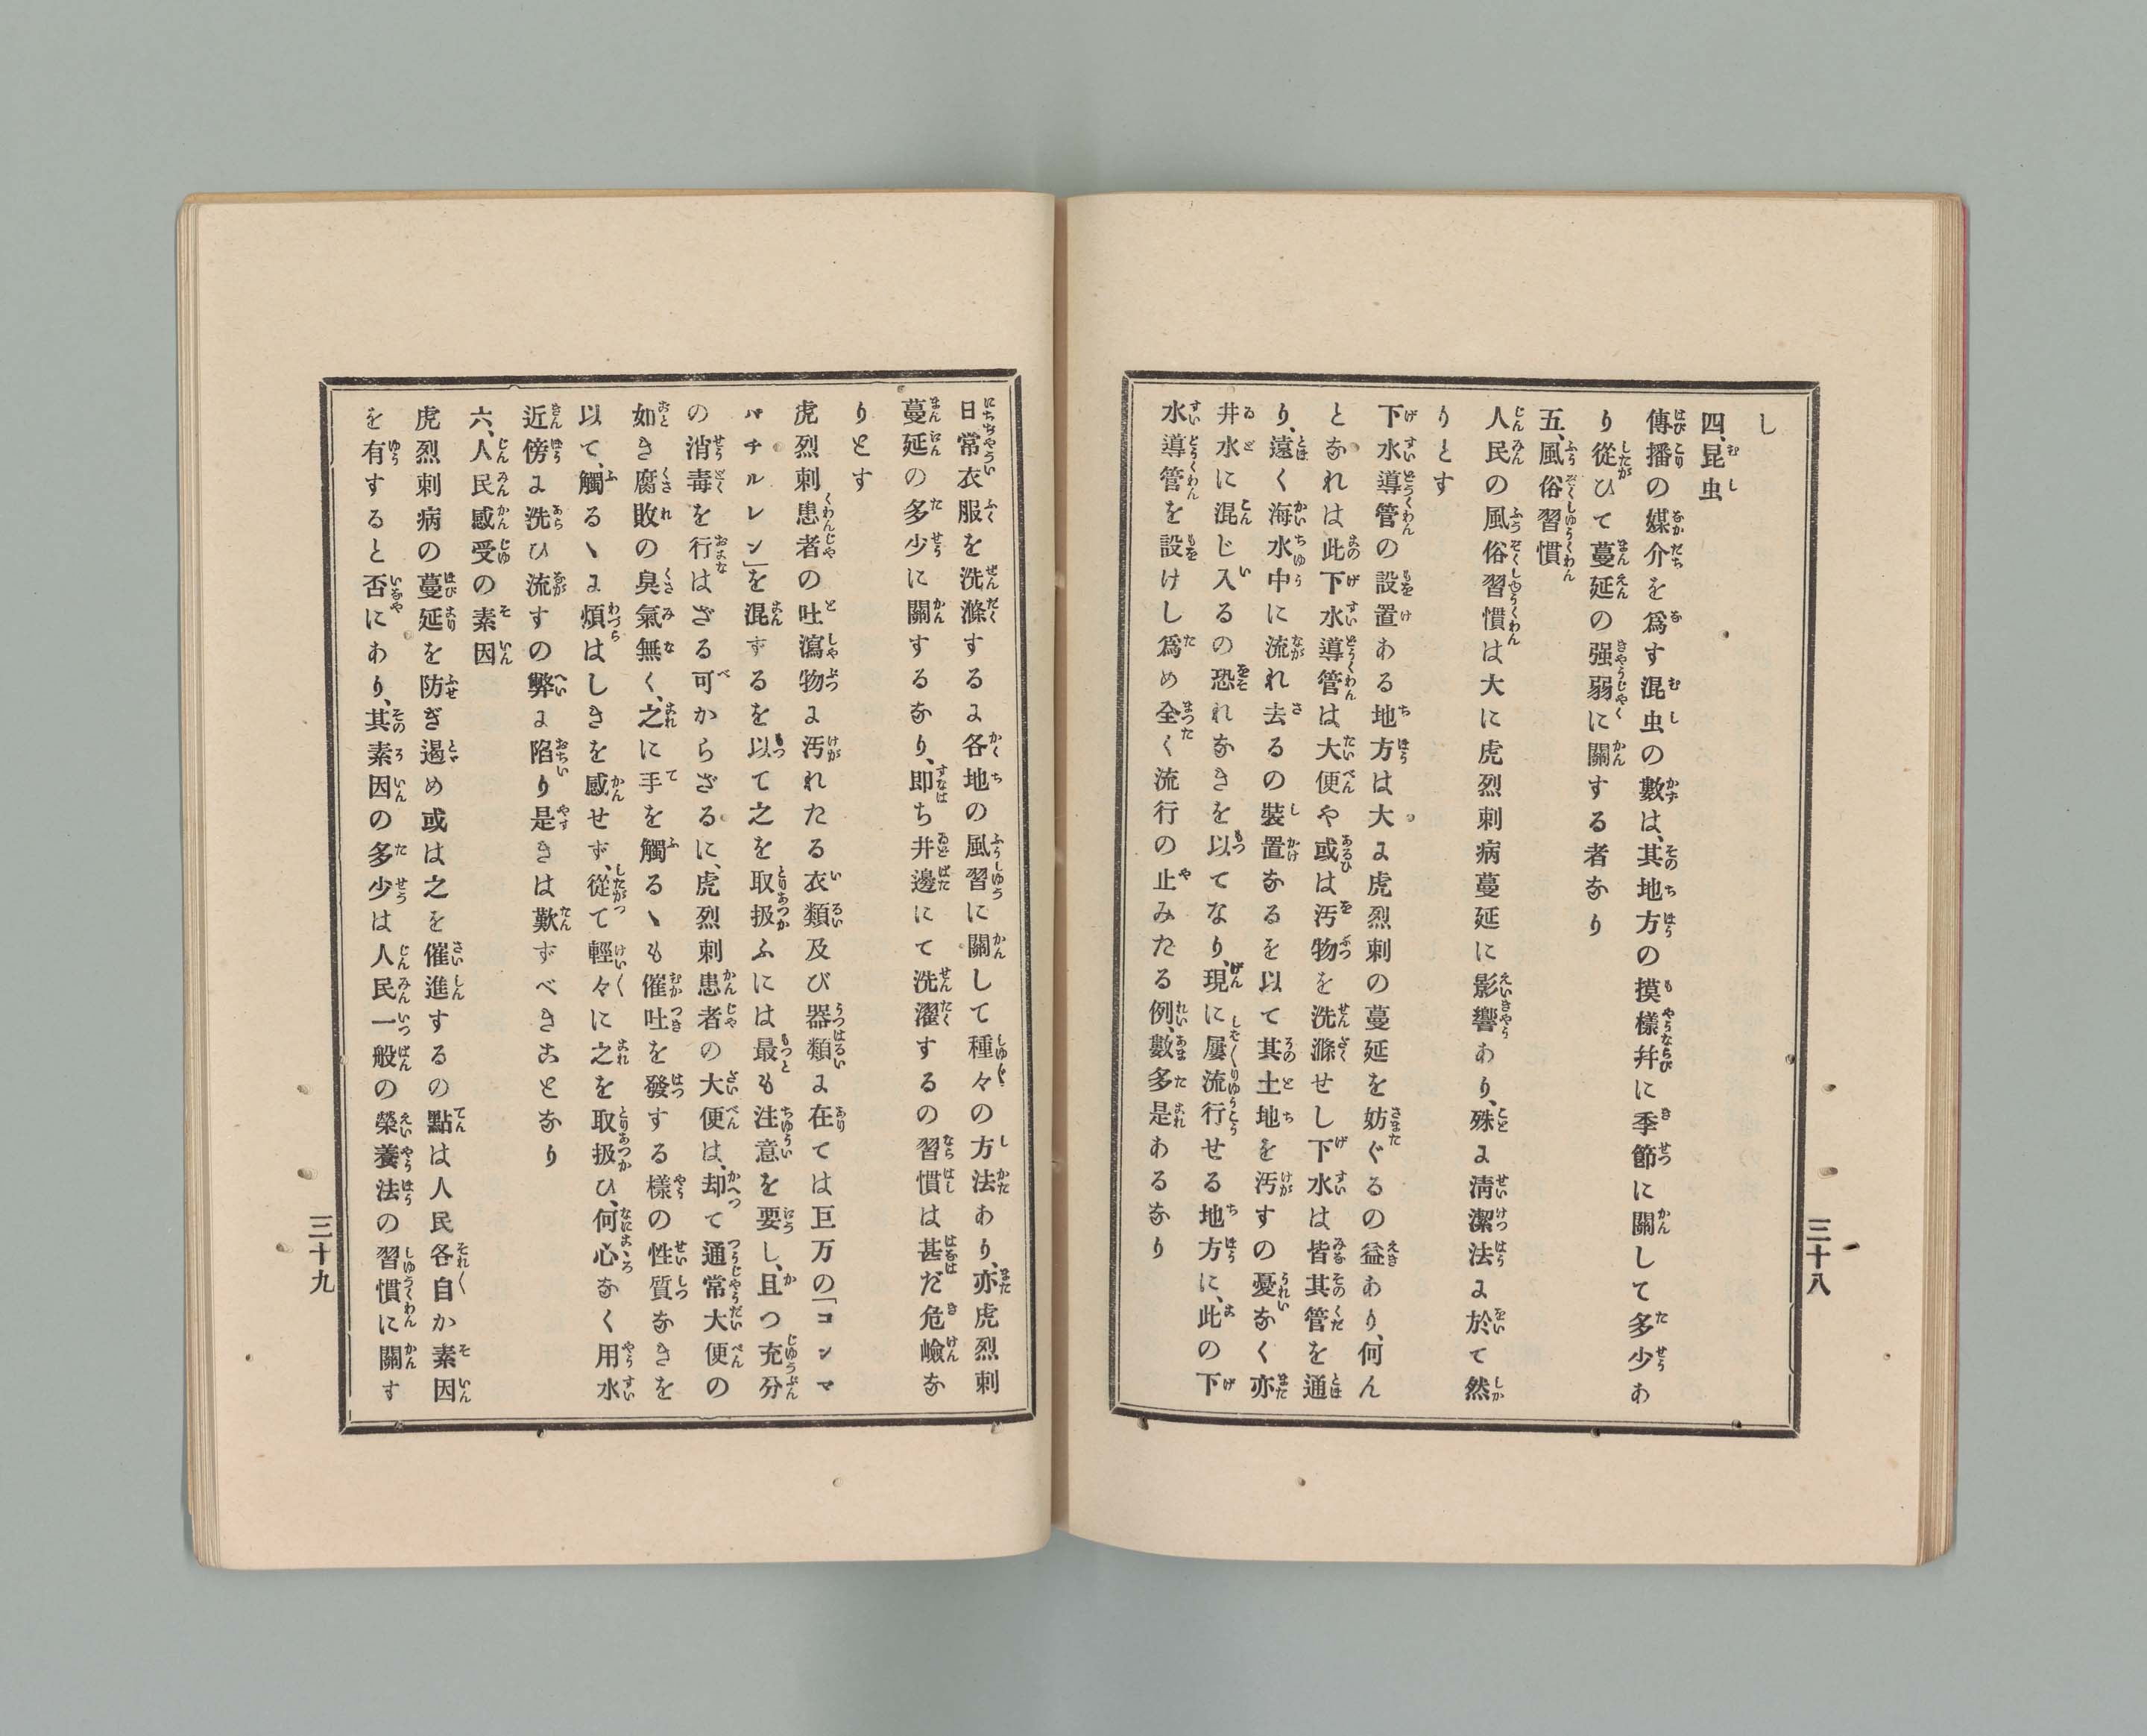 し
四、昆虫
傳播の媒介を爲す混虫の數は、其地方の摸樣幷に季節に關して多少あ
り從ひて蔓延の强弱に關する者なり
五、風俗習慣
人民の風俗習慣は大に虎烈刺病蔓延に影響あり、殊に淸潔法に於て然
りとす
下水導管の設置ある地方は大に虎烈刺の蔓延を妨ぐるの益あり、何ん
となれは此下水導管は大便や或は汚物を洗滌せし下水は皆其管を通
り、遠く海水中に流れ去るの裝置なるを以て其土地を汚すの憂なく亦
井水に混じ入るの恐れなきを以てなり、現に屢流行せる地方に、此の下
水導管を設けし爲め全く流行の止みたる例、數多是あるなり
三十八
日常衣服を洗滌するに各地の風習に關して種々の方法あり、亦虎烈刺
蔓延の多少に關するなり、即ち井邊にて洗濯するの習慣は甚だ危嶮な
りとす
虎烈刺患者の吐瀉物に汚れたる衣類及び器類に在ては巨万の「コンマ
バチルレン」を混ずるを以て之を取扱ふには最も注意を要し、且つ充分
の消毒を行はざる可からざるに、虎烈刺患者の大便は、却て通常大便の
如き腐敗の臭氣無く、之に手を觸るヽも催吐を發する樣の性質なきを
以て、觸るヽに煩はしきを感せず、從て輕々に之を取扱ひ、何心なく用水
近傍に洗ひ流すの弊に陷り是きは歎ずべきことなり
六、人民感受の素因
虎烈刺病の蔓延を防ぎ遏め或は之を催進するの點は人民各自か素因
を有すると否にあり、其素因の多少は人民一般の榮養法の習慣に關す
三十九